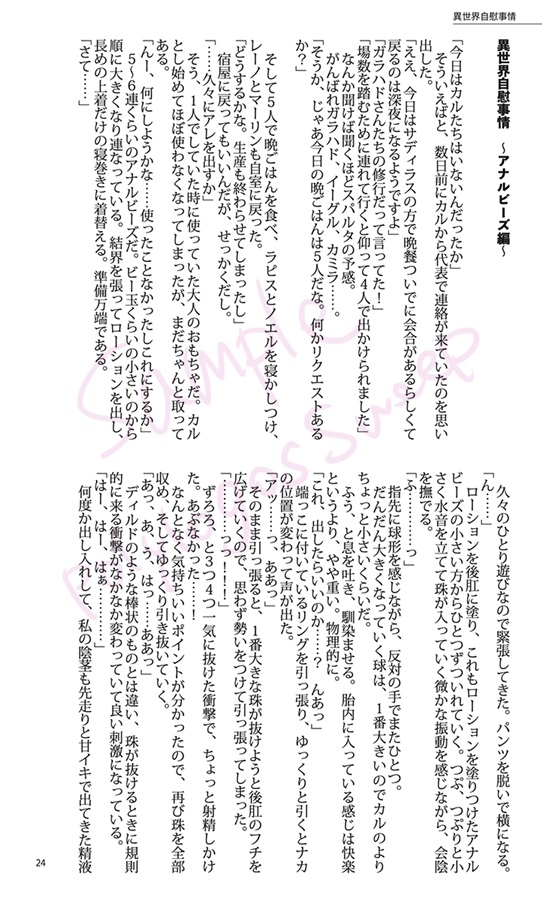 異世界自慰事情
異世界自慰事情　～アナルビーズ編～
「今日はカルたちはいないんだったか」
　そういえばと、数日前にカルから代表で連絡が来ていたのを思い
出した。
「ええ、今日はサディラスの方で晩餐ついでに会合があるらしくて
戻るのは深夜になるようですよ」
「ガラハドさんたちの修行だって言ってた！」
「場数を踏むために連れて行くと仰って４人で出かけられました」
　なんか聞けば聞くほどスパルタの予感。
　がんばれガラハド、イーグル、カミラ……。
「そうか、じゃあ今日の晩ごはんは５人だな。何かリクエストある
か？」
　そして５人で晩ごはんを食べ、ラピスとノエルを寝かしつけ、
レーノとマーリンも自室に戻った。
「どうするかな。生産も終わらせてしまったし」
　宿屋に戻ってもいいんだが、せっかくだし。
「……久々にアレを出すか」
　そう、１人でしていた時に使っていた大人のおもちゃだ。カル
とし始めてほぼ使わなくなってしまったが、まだちゃんと取って
ある。
「んー、何にしようかな……使ったことなかったしこれにするか」
　５～６連くらいのアナルビーズだ。ビー玉くらいの小さいのから
順に大きくなり連なっている。結界を張ってローションを出し、
長めの上着だけの寝巻きに着替える。準備万端である。
「さて……」
　久々のひとり遊びなので緊張してきた。パンツを脱いで横になる。
「ん……」
　ローションを後肛に塗り、これもローションを塗りつけたアナル
ビーズの小さい方からひとつずついれていく。つぷ、つぷりと小
さく水音を立てて珠が入っていく微かな振動を感じながら、会陰
を撫でる。
「ふ………っ」
　指先に球形を感じながら、反対の手でまたひとつ。
　だんだん大きくなっていく球は、１番大きいのでカルのより
ちょっと小さいくらいだ。
　ふう、と息を吐き、馴染ませる。胎内に入っている感じは快楽
というより、やや重い。物理的に。
「これ、出したらいいのか……？　んあっ」
　端っこに付いているリングを引っ張り、ゆっくりと引くとナカ
の位置が変わって声が出た。
「アッ……っ、ああっ」
　そのまま引っ張ると、１番大きな珠が抜けようと後肛のフチを
広げていくので、思わず勢いをつけて引っ張ってしまった。
「………っっ！！！」
　ずろろ、と３つ４つ一気に抜けた衝撃で、ちょっと射精しかけ
た。あぶなかった……！
　なんとなく気持ちいいポイントが分かったので、再び珠を全部
収め、そしてゆっくり引き抜いていく。
「あっ、あ、う、はっ……ああっ」
　ディルドのような棒状のものとは違い、珠が抜けるときに規則
的に来る衝撃がなかなか変わっていて良い刺激になっている。
「はー、はー、はぁ…………」
　何度か出し入れして、私の陰茎も先走りと甘イキで出てきた精液
24
Sample